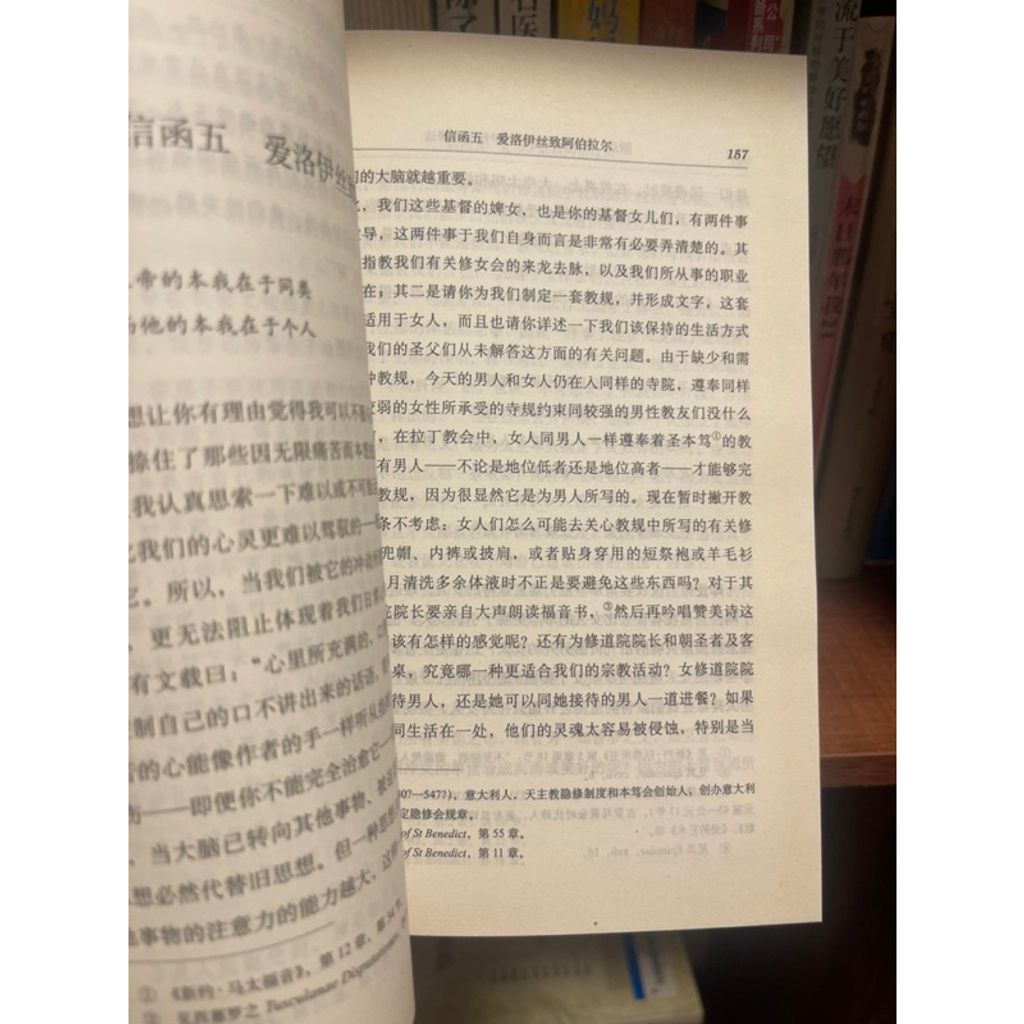 信函五 爱洛伊丝
帝的本我在于同类
他的本我在于个人
想让你有理由觉得我可以不
住了那些因无限痛苦而本
我认真思索一下难以或不可能
我们的心灵更难以驾驭的
。所以，当我们被它的冲动
更无法阻止体现着我们日常
有文载曰：“心里所充满的，口
制自己的口不讲出来的话语，
的心能像作者的手一样听从
——即便你不能完全治愈它
当大脑已转向其他事物、被
想必然代替旧思想。但一种思想
事物的注意力的能力越大，这
② 《新约·马太福音》，第12章，第34节。
西塞罗之 Tusculanae Disputationes
信函五 爱洛伊丝致阿伯拉尔
157
的大脑就越重要。
，我们这些基督的婢女，也是你的基督女儿们，有两件事
导，这两件事于我们自身而言是非常有必要弄清楚的。其
指教我们有关修女会的来龙去脉，以及我们所从事的职业
在；其二是请你为我们制定一套教规，并形成文字，这套
适用于女人，而且也请你详述一下我们该保持的生活方式
我们的圣父们从未解答这方面的有关问题。由于缺少和需
种教规，今天的男人和女人仍在入同样的寺院，遵奉同样
弱的女性所承受的寺规约束同较强的男性教友们没什么
，在拉丁教会中，女人同男人一样遵奉着圣本笃①的教
有男人——不论是地位低者还是地位高者——才能够完
教规，因为很显然它是为男人所写的。现在暂时撇开教
条不考虑：女人们怎么可能去关心教规中所写的有关修
兜帽、内裤或披肩，或者贴身穿用的短祭袍或羊毛衫
月清洗多余体液时不正是要避免这些东西吗？对于其
院长要亲自大声朗读福音书，③然后再吟唱赞美诗这
该有怎样的感觉呢？还有为修道院院长和朝圣者及客
桌，究竟哪一种更适合我们的宗教活动？女修道院院
待男人，还是她可以同她接待的男人一道进餐？如果
同生活在一处，他们的灵魂太容易被侵蚀，特别是当
80?—547?），意大利人，天主教隐修制度和本笃会创始人，创办意大利
定隐修会规章。
of St Benedict，第55章。
of St Benedict，第11章。
妈
公司
系列
流于美好愿望
末日那年我21